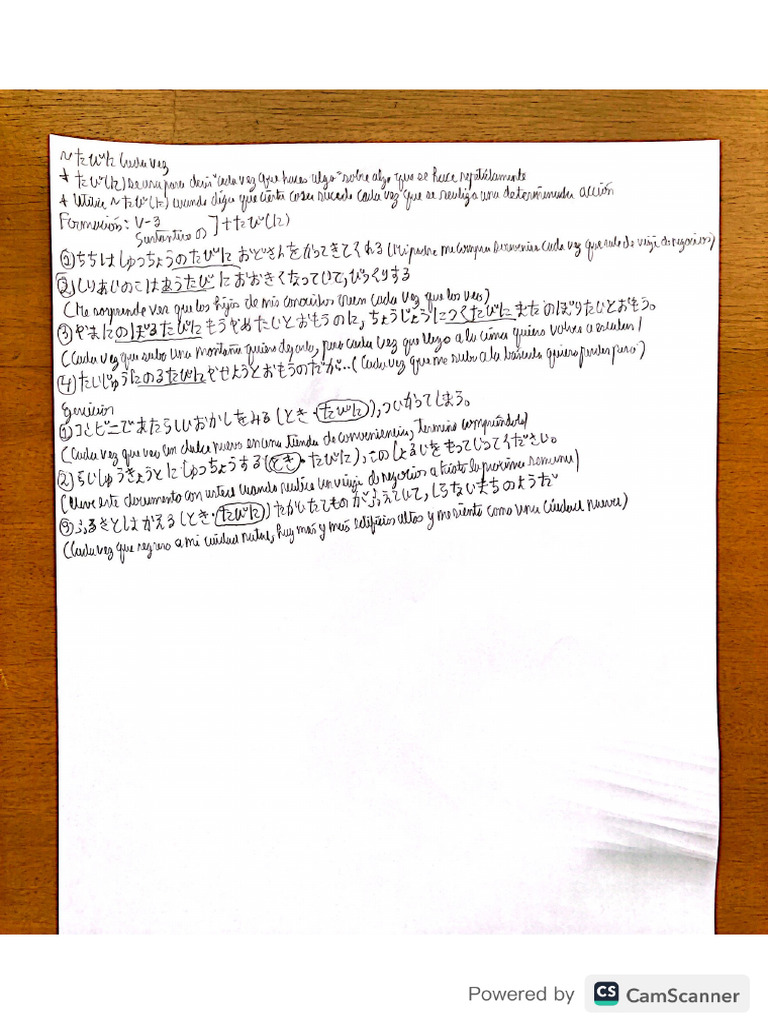 ~たびに Cada vez
* たび(に) Se usa para decir "cada vez que haces algo" sobre algo que se hace repetidamente
* Utilice ~たび(に) cuando diga que cierta cosa sucede cada vez que se realiza una determinada acción
Formación: V-3
Sustantivo の ] + たび(に)
① ちちはしゅっちょうのたびに おどさんをかってきてくれる (Mi padre me compra souvenirs cada vez que sale de viaje de negocios)
② しりあいのこはあうたびに おおきくなっていて、びっくりする
(Me sorprende ver que los hijos de mis conocidos crecen cada vez que los veo)
③ やまにのぼるたびにもうやめたいとおもうのに、ちょうじょうにつくたびにまたのぼりたいとおもう。
(Cada vez que subo una montaña quiero dejarlo, pero cada vez que llego a la cima quiero volver a escalar)
④ たいじゅうにのるたびにやせようとおもうのだが... (Cada vez que me subo a la báscula quiero perder peso)
Ejercicios
① コンビニであたらしいおかしをみる (とき・たびに), ついかってしまう。
(Cada vez que veo un dulce nuevo en una tienda de conveniencia, termino comprándolo)
② らいしゅうきょうとにしゅっちょうする (とき・たびに), このしょるいをもっていってください。
(Lleve este documento con usted cuando realice un viaje de negocios a Kioto la próxima semana)
③ ふるさとはかえる (とき・たびに) たかいたてものがふえていて, しらないまちのようだ
(Cada vez que regreso a mi ciudad natal, hay más y más edificios altos y me siento como una ciudad nueva)
Powered by CS CamScanner